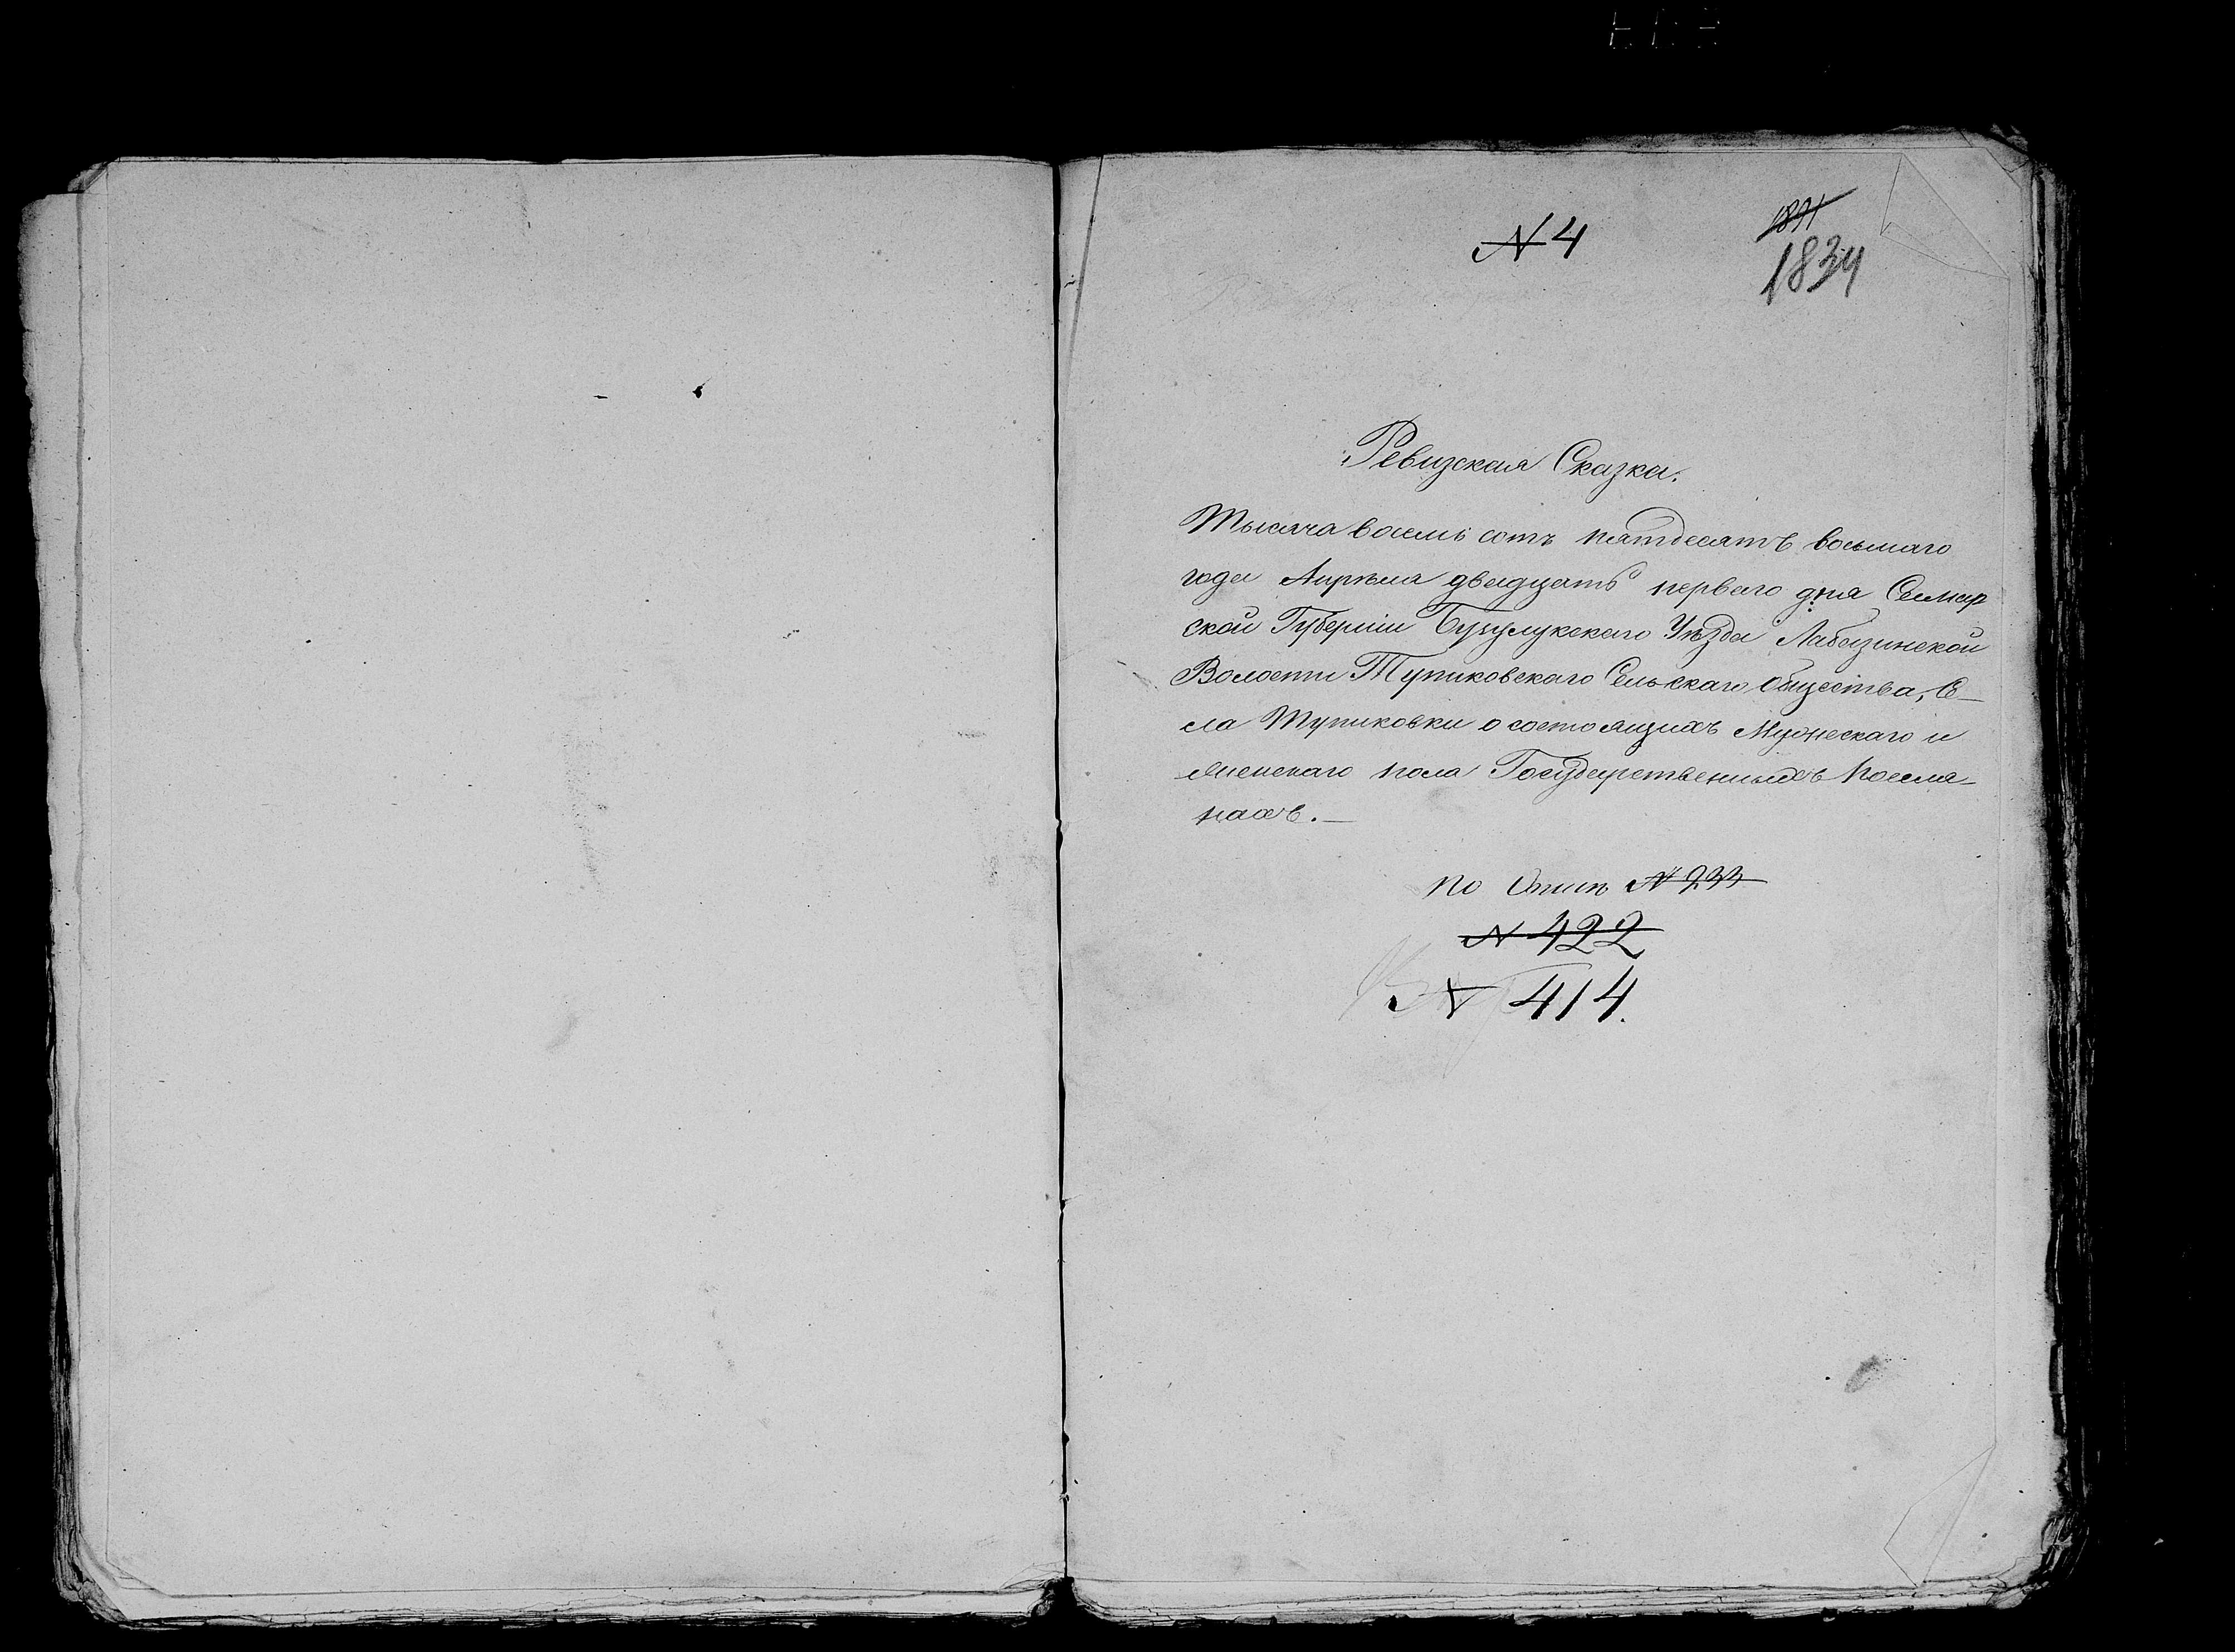 № 4
1834
Ревизская Сказка.
Тысяча восемь сотъ пятдесятъ восьмаго
года Апрѣля двадцать перваго дня Самар
ской Губерніи Бузулукскаго Уѣзда Лабазинской
Волости Тупиковскаго Сельскаго Общества, Се-
ла Тупиковки о состоящихъ Мужескаго и
женскаго пола Государственныхъ Поселя-
нахъ.
по Описи № 233
№ 422
№ 414.